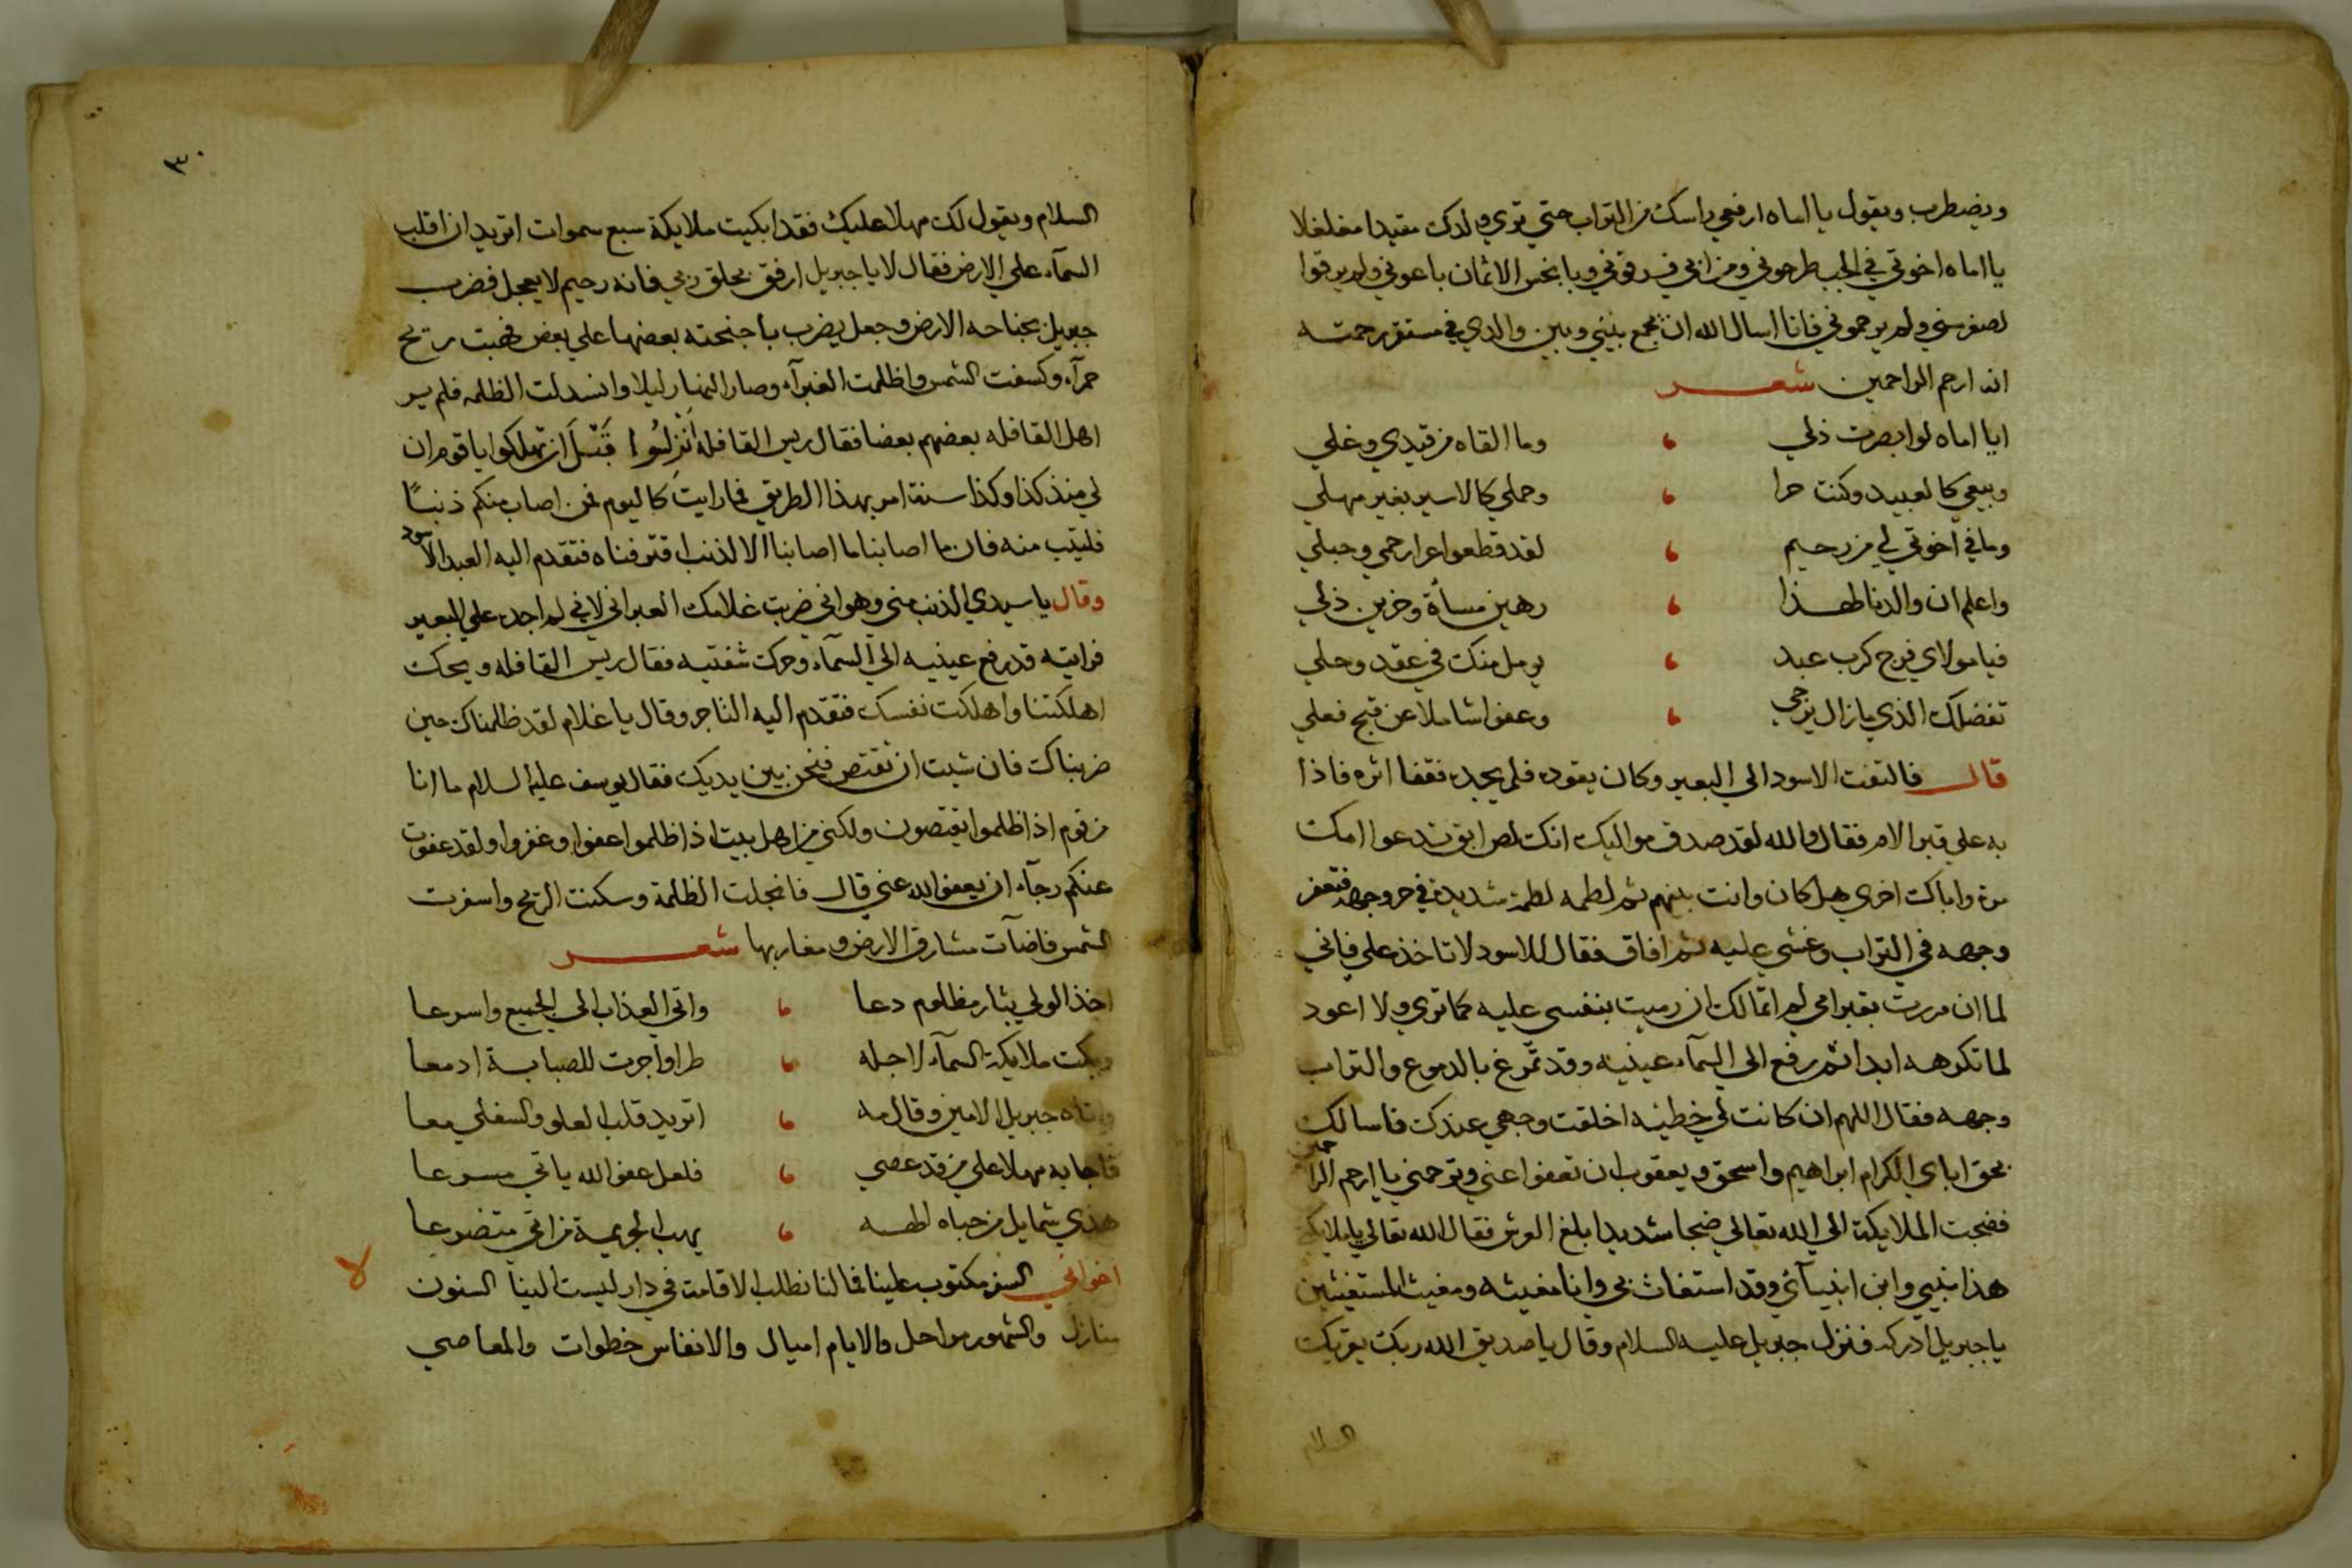 ويضطرب ويقول يا اماه ارفعي راسك من التراب حتي تري ولدك مقيدا مغلغلا
يا اماه اخوتي في الجب طرحوني ومن ابي فرقوني وبابخس الاثمان باعوني ولم يرقوا
لصغر سني ولم يرحموني فانا اسال الله ان يجمع بيني وبين والدي في مستقر رحمته
انه ارحم الراحمين شعر
ايا اماه لو ابصرت ذلي ، وما القاه من قيدي وغلي
وبيعي كالعبيد وكنت حرا ، وحملي كالاسير بغير مهلي
وما في اخوتي لي من رحيم ، لقد قطعوا عرا رحمي وحبلي
واعلم ان والدنا لهذا ، رهين مسأة وحزين ذلي
فيا مولاي فرج كرب عبد ، يومل منك في عقد وحلي
تفضلك الذي ما زال يرجي ، وعفوا شاملا عن قبح فعلي
قال فالتفت الاسود الي البعير وكان يقوده فلم يجده فقفا اثره فاذا
به علي قبر الام فقال والله لقد صدق مواليك انك لص ابق تدعوا امك
مرة واباك اخري هل كان وانت بينهم ثم لطمه لطمة شديدة في حر وجهه فتعفر
وجهه في التراب وغشي عليه ثم افاق فقال للاسود لا تاخذ علي فاني
لما ان مررت بقبر امي لم اتمالك ان رميت بنفسي عليه كما تري ولا اعود
لما تكرهه ابدا ثم رفع الي السمآء عينيه وقد تمرغ بالدموع والتراب
وجهه فقال اللهم ان كانت لي خطيئه اخلقت وجهي عندك فاسالك
بحق اباي الكرام ابراهيم واسحق ويعقوب ان تعفوا عني وترحمني يا ارحم الراحمين
فضجت الملايكة الي الله تعالي ضجا شديدا بلغ العرش فقال الله تعالي يا ملايكتي
هذا نبيي وابن انبيآئي وقد استغاث بي وانا مغيثه ومغيث المستغيثين
يا جبريل ادركه فنزل جبريل عليه السلام وقال يا صديق الله ربك يقريك
السلام
٣٠
السلام ويقول لك مهلا عليك فقد ابكيت ملايكة سبع سموات اتريد ان اقلب
السمآء علي الارض فقال لا يا جبريل ارفق بخلق ربي فانه رحيم لا يعجل فضرب
جبريل بجناحه الارض وجعل يضرب باجنحته بعضها علي بعض فهبت ريح
حمرآء وكسفت الشمس واظلمت الغبرآء وصار النهار ليلا وانسدلت الظلمه فلم ير
اهل القافله بعضهم بعضا فقال ريس القافلة انزلوا قَبْلَ ان تهلكوا يا قوم ان
لي منذ كذا وكذا سنة امر بهذا الطريق فما رايت كاليوم فمن اصاب منكم ذنبًا
فليتب منه فان ما اصابنا ما اصابنا الا لذنب اقترفناه فتقدم اليه العبد الاسود
وقال يا سيدي الذنب مني وهو اني ضربت غلامك العبراني لاني لم اجده علي البعير
فرايته قد رفع عينيه الي السمآء وحرك شفتيه فقال ريس القافله ويحك
اهلكتنا واهلكت نفسك فتقدم اليه التاجر وقال يا غلام لقد ظلمناك حين
ضربناك فان شيت ان تقتص فنحن بين يديك فقال يوسف عليه السلام ما انا
من قوم اذا ظلموا يقتصون ولكني من اهل بيت اذا ظلموا عفوا وغفروا ولقد عفوت
عنكم رجآء ان يعفو الله عني قال فانجلت الظلمة وسكنت الريح واسفرت
الشمس فاضآت مشارق الارض ومغاربها شعر
اخذ الولي بثار مظلوم دعا ، واتي العذاب الي الجميع واسرعا
وبكت ملايكة السمآء لاجله ، طرا واجرت للصبابة ادمعا
واتاه جبريل الامين وقال مه ، اتريد قلب العلو والسفلي معا
فاجابه مهلا علي من قد عصي ، فلعل عفو الله ياتي مسرعا
هذي شمايل من حباه لطفه ، يهب الجريمة من اتي متضرعا
اخواني السفر مكتوب علينا فما لنا نطلب الاقامة في دار ليست لنا السنون
منازل والشهور مراحل والايام اميال والانفاس خطوات والمعاصي
لا